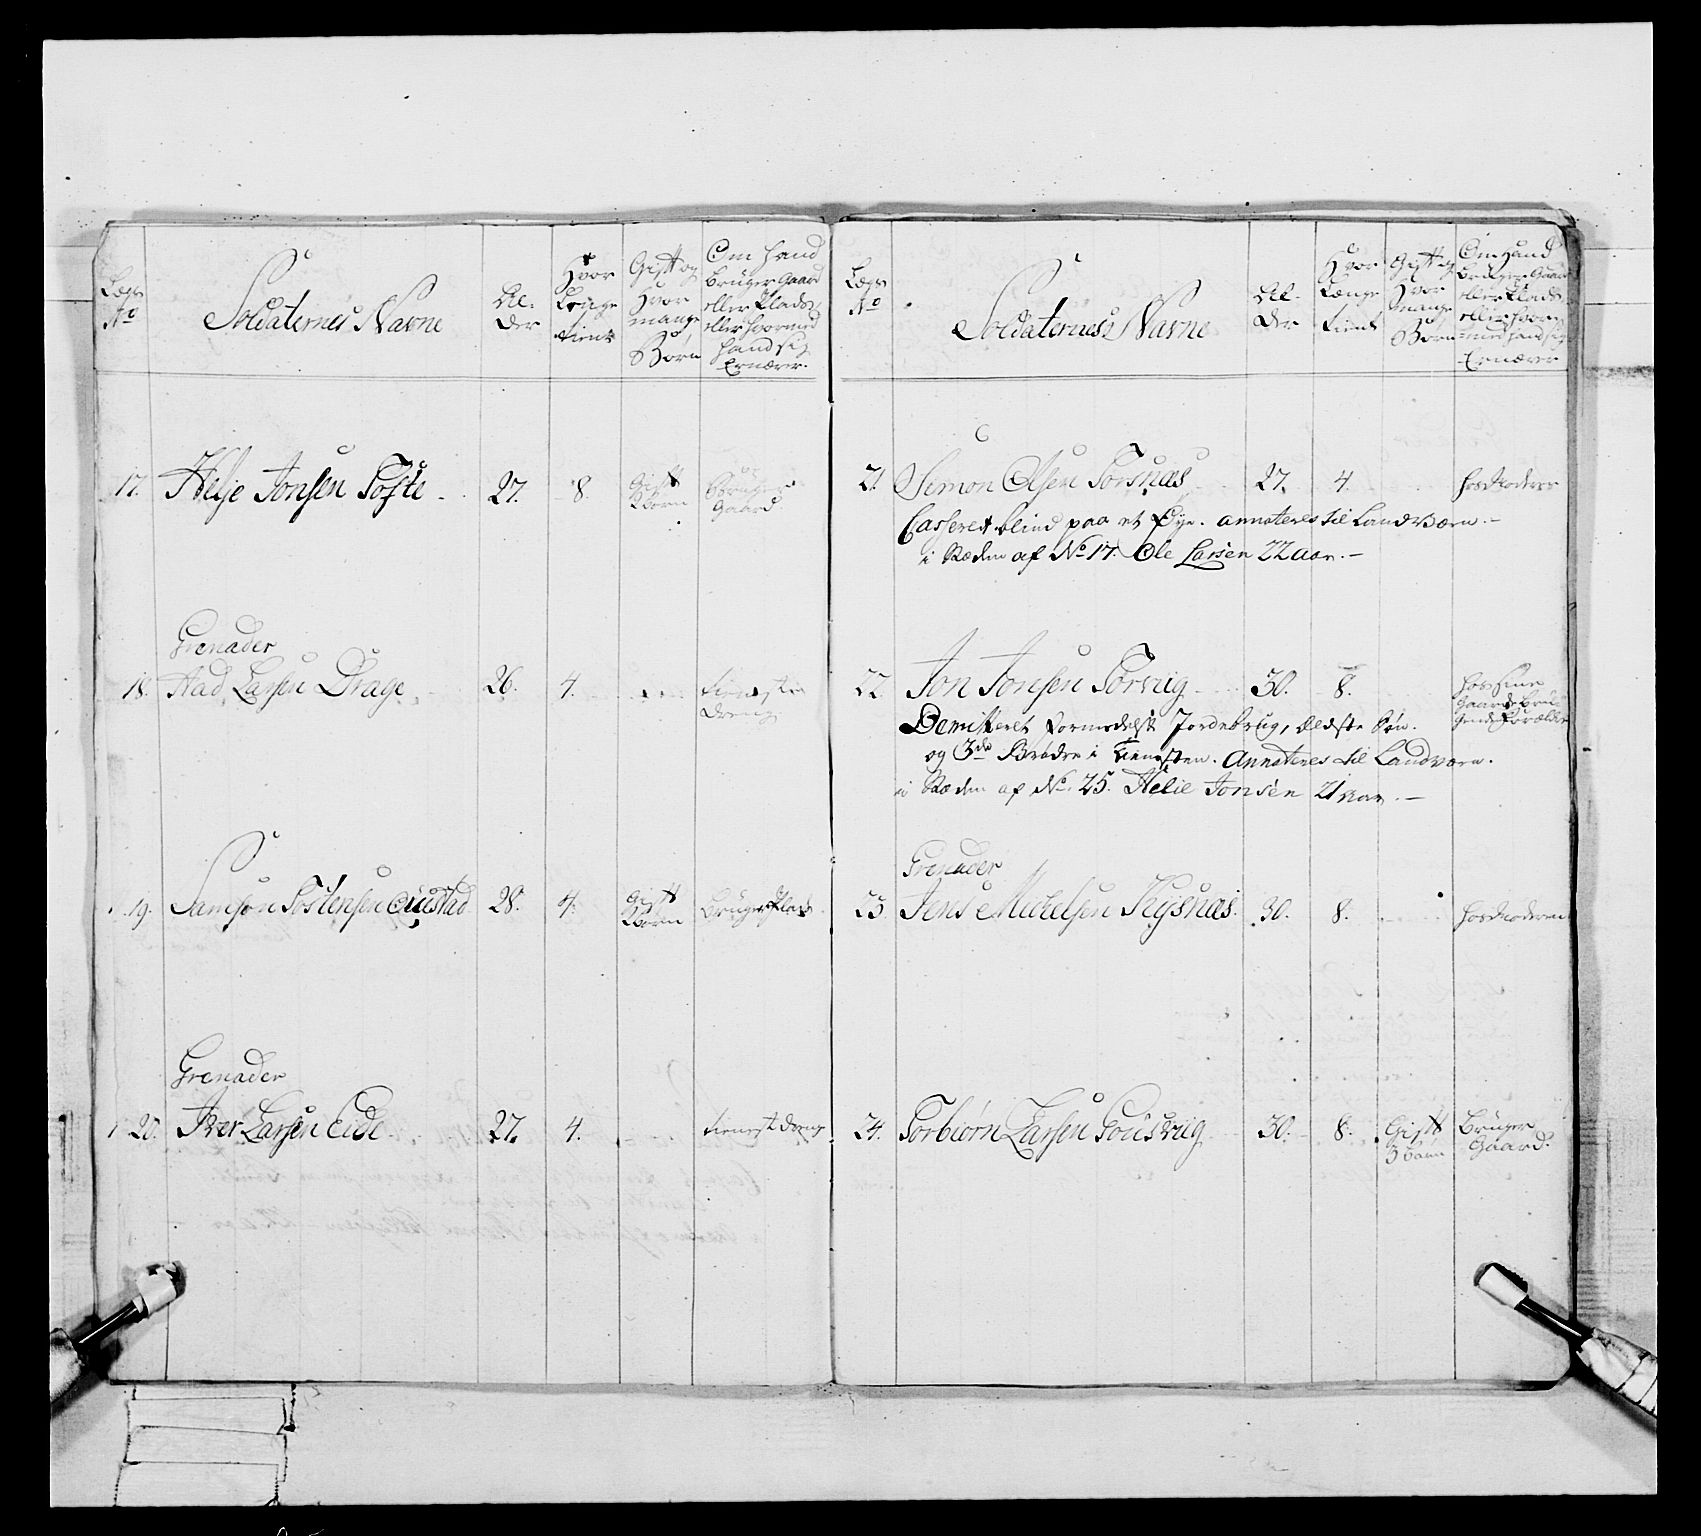 Lægs
No
Soldaternes Navne
Al-
der
Hvor
Længe
tient
Gift og
Hvor
mange
Børn
Om hand
bruger Gaard
eller Plads
eller hvormed
hand sig
Ernærer.
17. Helje Jonsen Tofte 27. 8 Gift Børn Bruger Gaard.
Grenader
18. Aad Larsen Drage 26. 4. tieneste dreng
19. Samson Tostensen 28. 4. Gift Børn Bruger Plads
Grenader
20. Iver Larsen Eide 27. 4. tienest dreng
Lægs
No
Soldaternes Navne
Al-
der
Hvor
Længe
tient
Gift og
Hvor
mange
Børn
Om Hand
bruger Gaard
eller Plads
eller hvor-
med hand sig
Ernærer
21. Simon Olsen Torsnæs 27. 4. hos Moderen
Casseret blind paa et Øye. annoteres til Landværn.-
i Stæden af No 17. Ole Larsen 22 aar.-
22. Jon Jonsen Torvug 30. 8. hos sine Gaardbrugende Forældre
Demitteret formedelst Jordebrug, ældste Søn.
og 3de Brødre i tienesten. Annoteres til Landværn.
i Stæden af No. 25. Helie Jonsen 21 aar.-
Grenader
23. Jens Mickelsen Kysnæs. 30. 8. hos Moderen
24. Torbiørn Larsen 30. 8. Gift 3 børn Bruger Gaard.